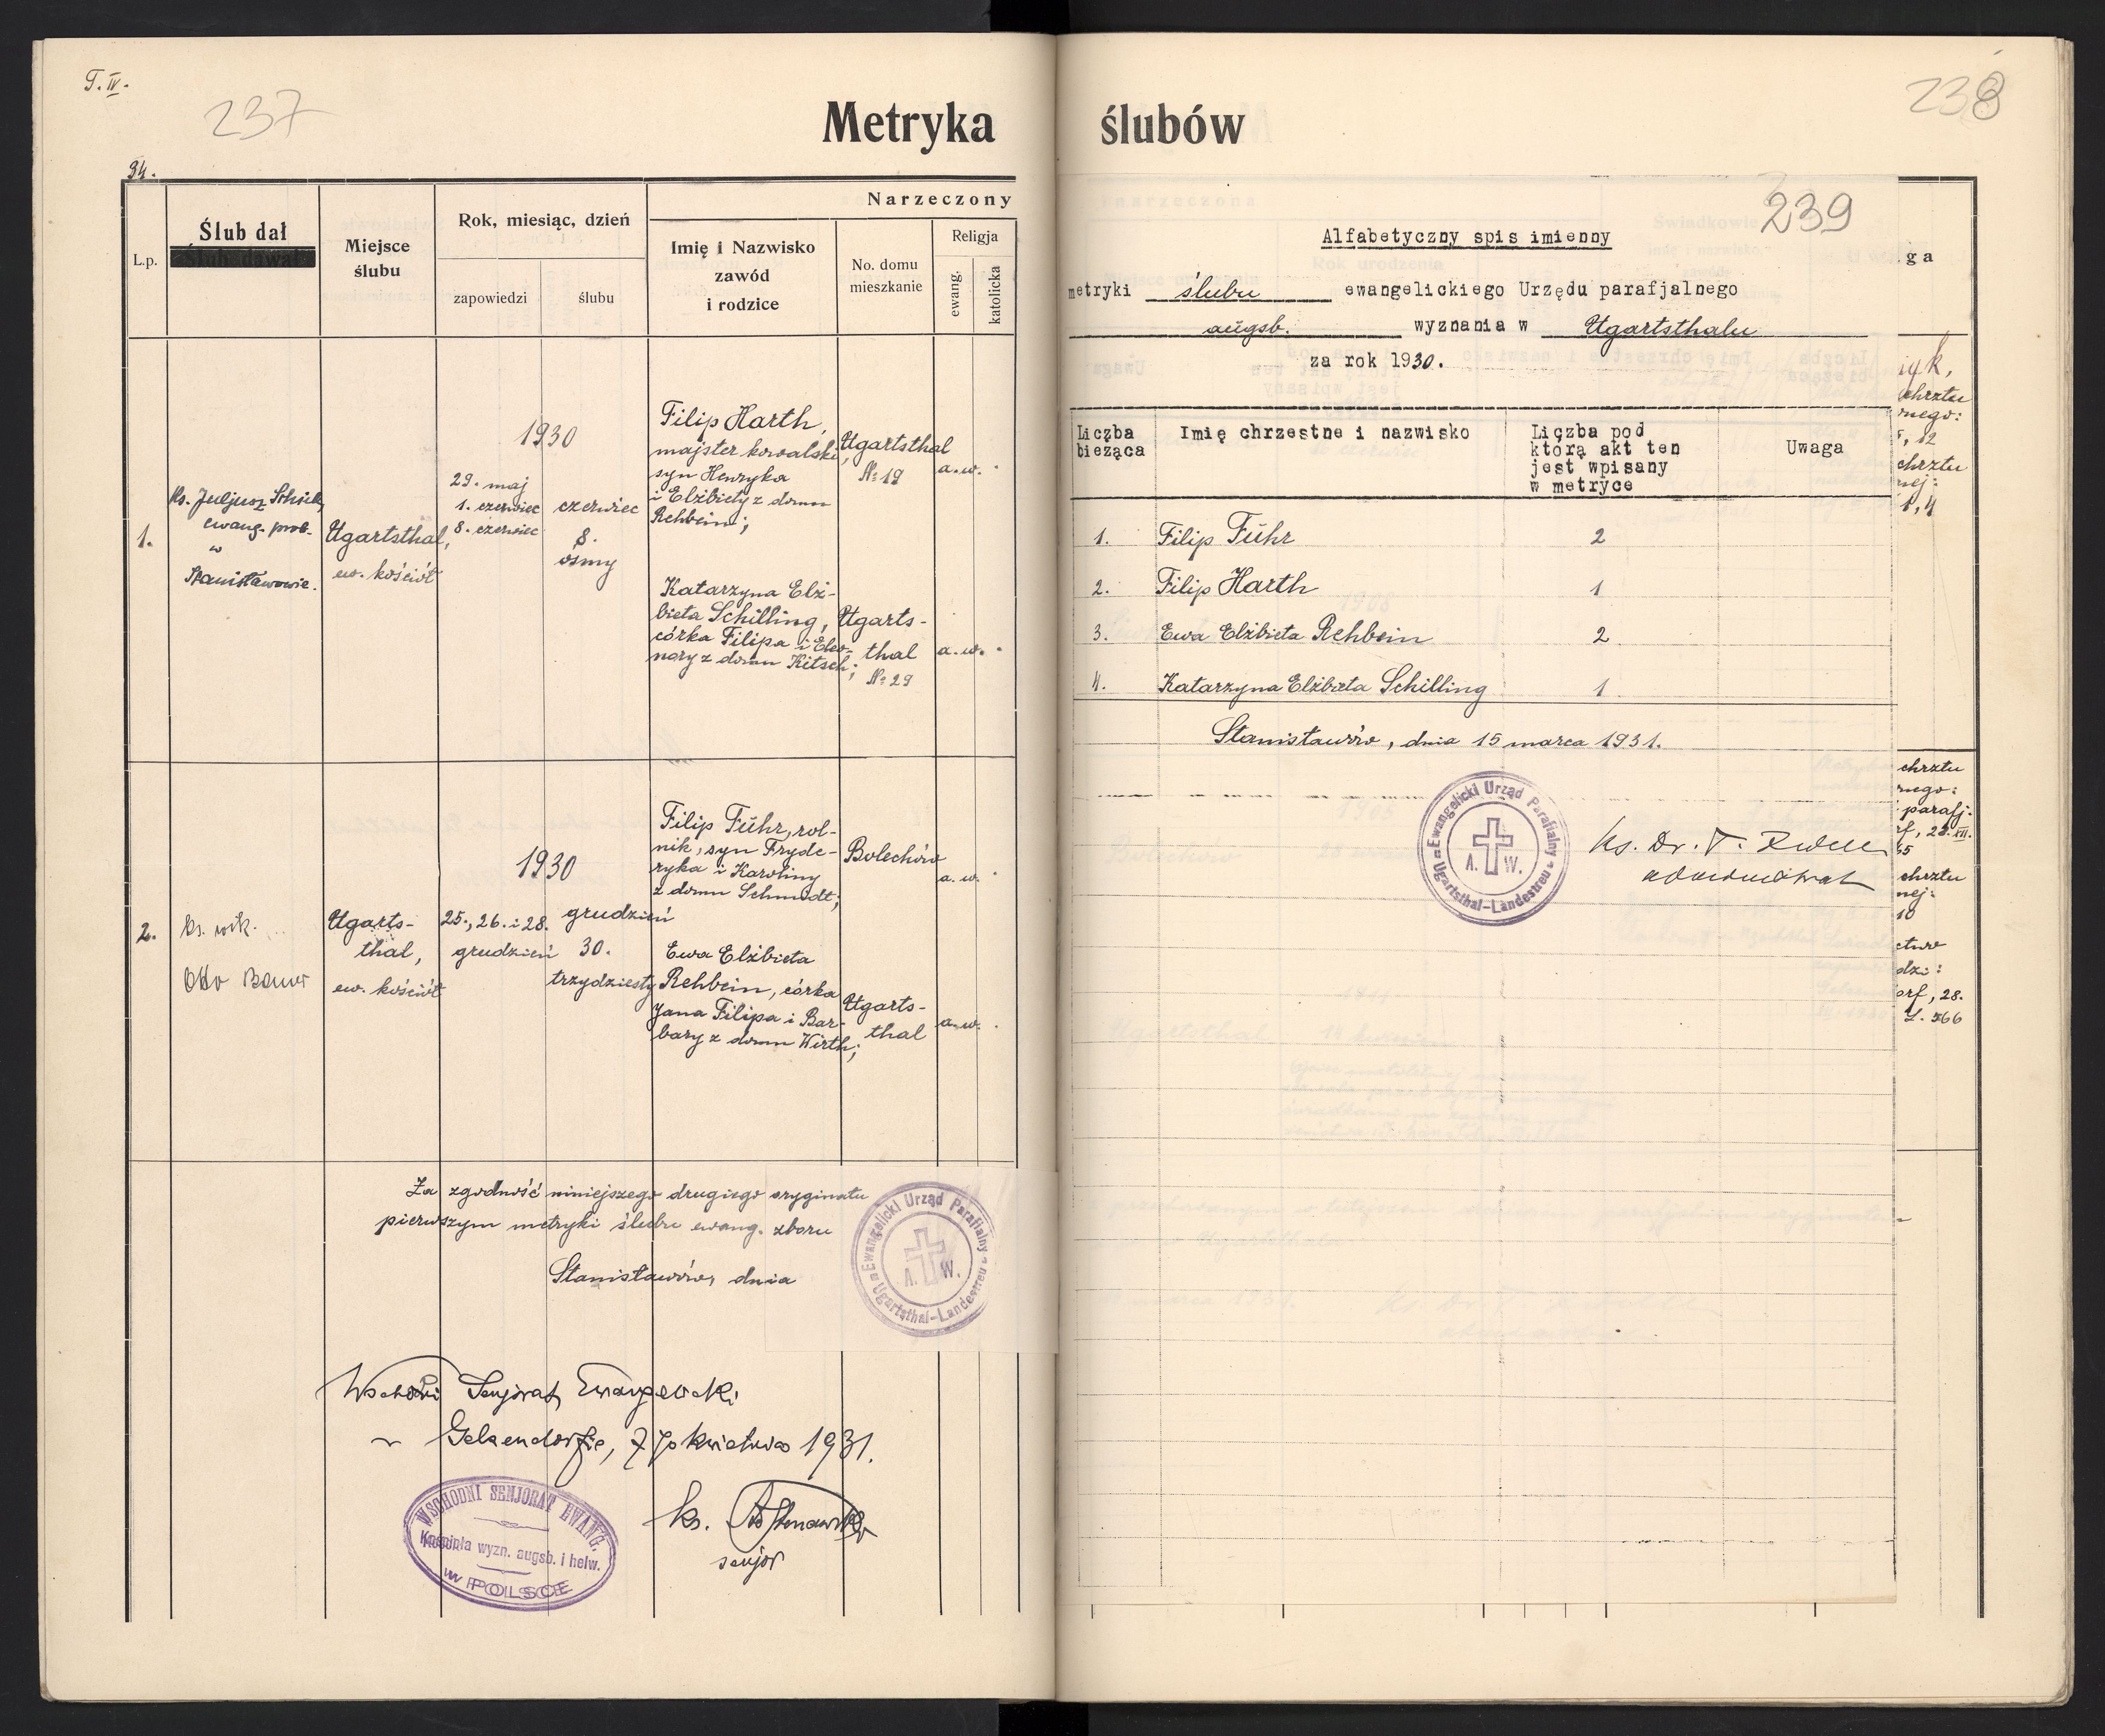 T. IV.
237
238
Metryka ślubów
34.
L.p.
Ślub dał
Ślub dawał
Miejsce
ślubu
Rok, miesiąc, dzień
zapowiedzi
ślubu
Narzeczony
Imię i Nazwisko
zawód
i rodzice
No. domu
mieszkanie
Religja
ewang.
katolicka
1.
ks. Juljusz
ewang. prob.
w
Stanisławowie.
Ugartsthal,
ew. kościół
1930
29. maj
1. czerwiec
8. czerwiec
czerwiec
8.
ósmy
Filip Harth,
majster kowalski,
syn Henryka
i Elżbiety z domu
Rehbein;
Ugartsthal
№ 19
a. w.
Katarzyna Elż-
bieta Schilling,
córka Filipa i Eleo-
nory z domu Kitsch;
Ugarts-
thal
№ 29
a. w.
2.
ks. wik.
Otto Bauer
Ugarts-
thal,
ew. kościół
1930
25., 26. i 28.
grudzień
grudzień
30.
trzydziesty
Filip Führ, rol-
nik, syn Fryde-
ryka i Karoliny
z domu Schmidt;
Bolechów
a. w.
Ewa Elżbieta
Rehbein, córka
Jana Filipa i Bar-
bary z domu Wirth;
Ugarts-
thal
a. w.
Za zgodność niniejszego drugiego oryginału
pierwszym metryki ślubu ewang. zboru
Stanisławów, dnia
Ewangelicki Urząd Parafialny
A. W.
Ugartsthal-Landestreu
Wschodni Senjorat Ewangelicki
w Gelsendorfie, 7go kwietnia 1931.
ks.
senjor
WSCHODNI SENJORAT EWANG.
Kościoła wyzn. augsb. i helw.
w POLSCE
239
Alfabetyczny spis imienny
metryki ślubu ewangelickiego Urzędu parafjalnego
augsb. wyznania w Ugartsthalu
za rok 1930.
Liczba
bieżąca
Imię chrzestne i nazwisko
Liczba pod
którą akt ten
jest wpisany
w metryce
Uwaga
1. Filip Führ 2
2. Filip Harth 1
3. Ewa Elżbieta Rehbein 2
4. Katarzyna Elżbieta Schilling 1
Stanisławów, dnia 15 marca 1931.
Ewangelicki Urząd Parafialny
A. W.
Ugartsthal-Landestreu
ks. Dr.
ga
chrztu
nego:
chrztu
nej:
1, 4
chrztu
nego:
parafj.
chrztu
nej:
10
ctwo
dzi:
orf, 28.